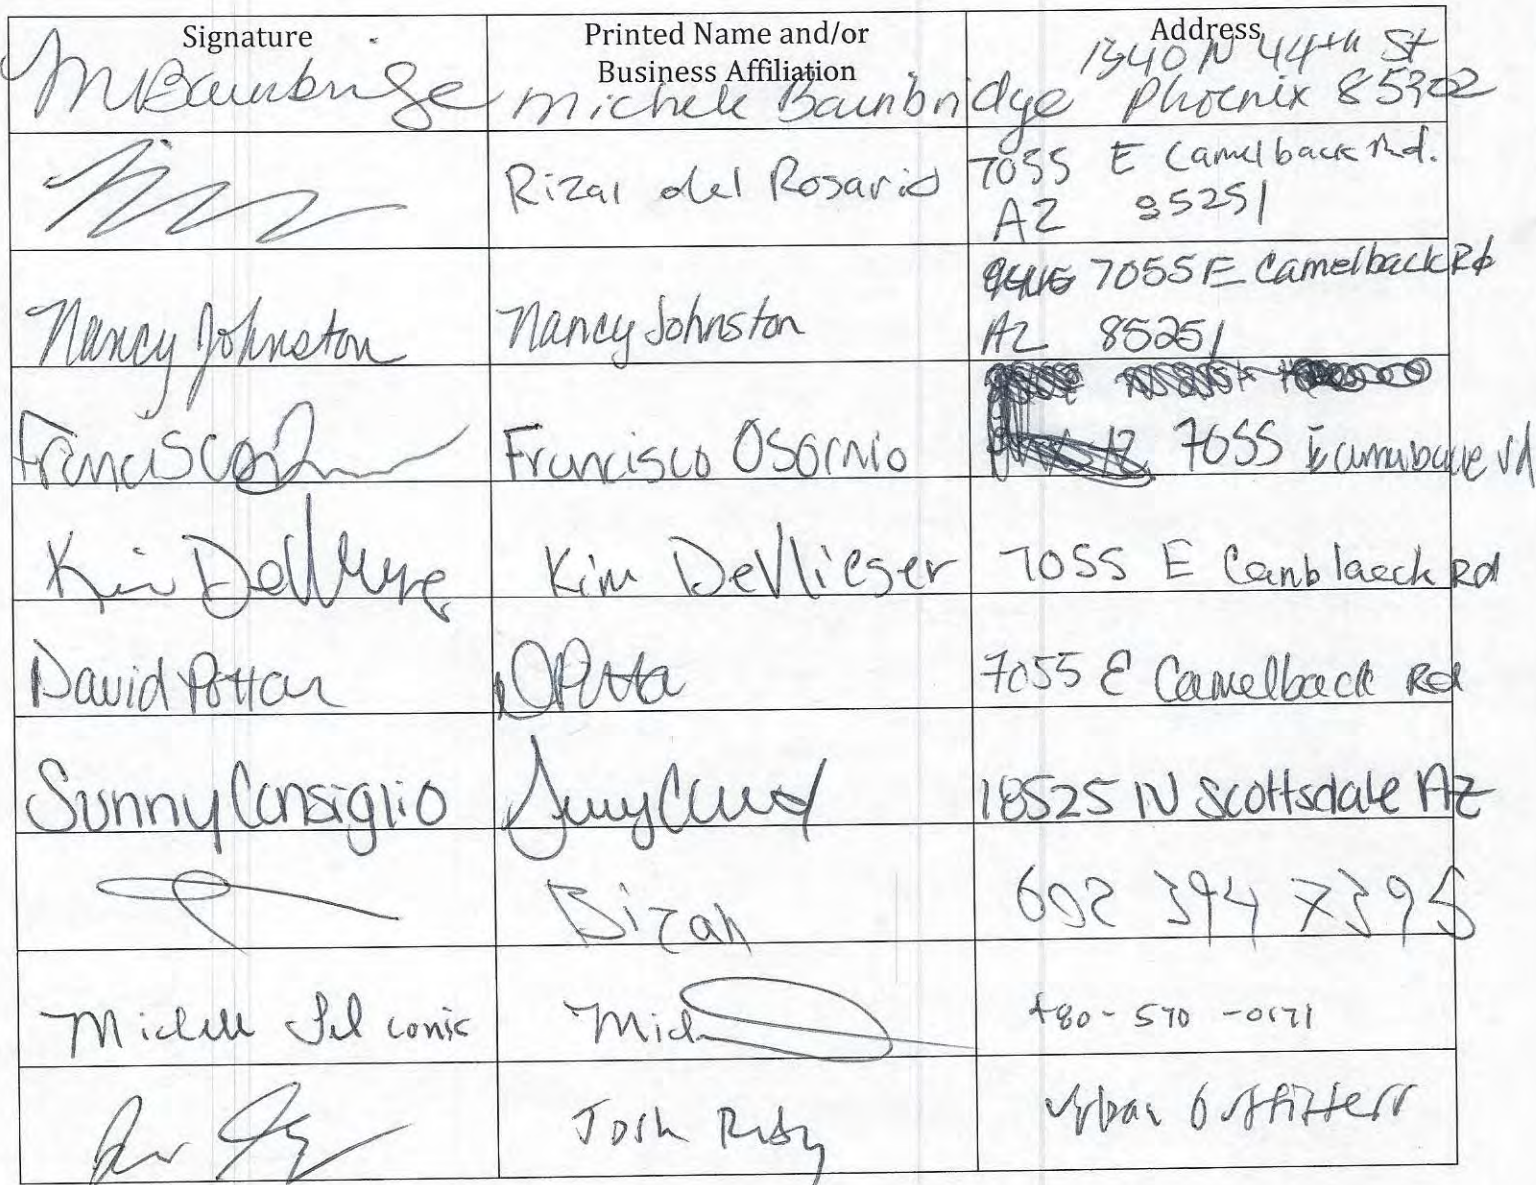 Signature
Printed Name and/or
Business Affiliation
Address
MBainbridge
Michele Bainbridge
1340 N 44th St
Phoenix 85302
Rizal del Rosario
7055 E Camelback Rd.
AZ 85251
Nancy Johnston
Nancy Johnston
7055 E Camelback Rd
AZ 85251
Francisco
Francisco Osornio
7055
Kim
Kim DeVlieger
7055 E Camblaeck Rd
David Pottar
7055 E Camelback Rd
Sunny Consiglio
18525 N Scottsdale AZ
Bizah
602 394 7395
Michele
480-570-0171
Josh
Urban Outfitters